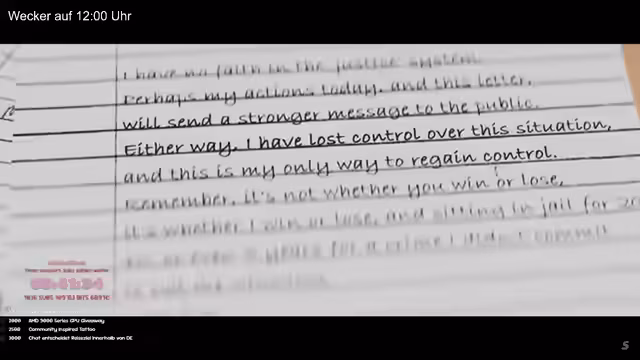 Wecker auf 12:00 Uhr
I have no faith in the justice system.
Perhaps my actions today, and this letter,
will send a stronger message to the public.
Either way, I have lost control over this situation,
and this is my only way to regain control.
Remember, it's not whether you win or lose,
it's whether I win or lose, and sitting in jail for
years for a crime I didn't commit
2000 AMD 9000 Series GPU Giveaway
2500 Community inspired Tattoo
3000 Chat entscheidet Reiseziel innerhalb von DE
S